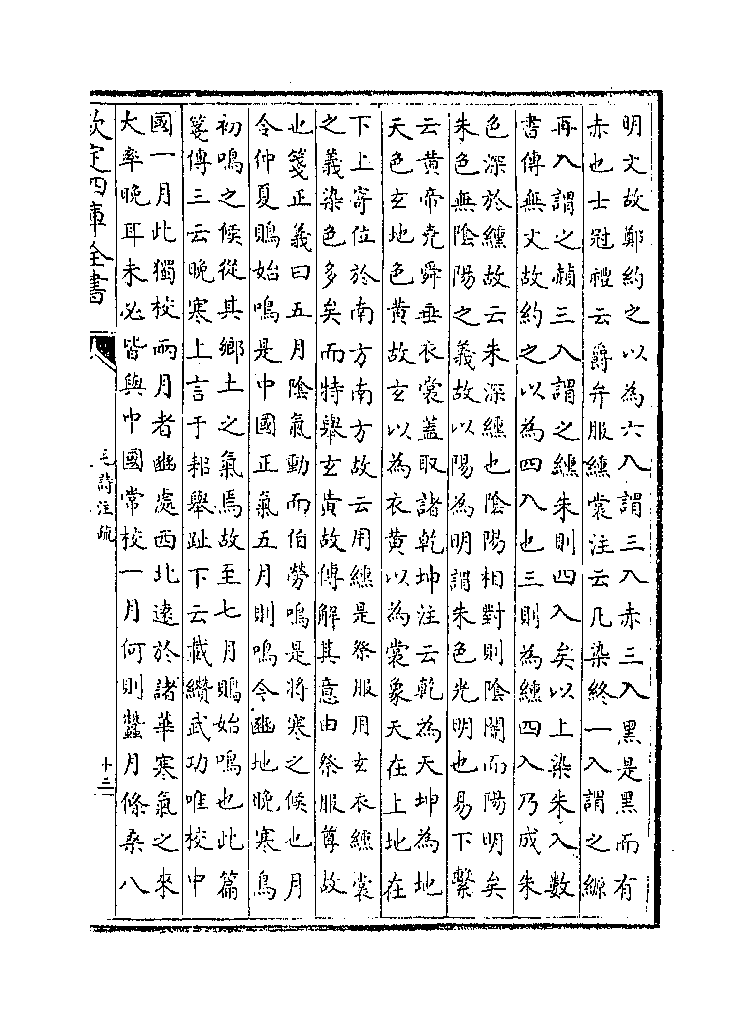 明文故鄭約之以為六入謂三入赤三入黑是黑而有
赤也士冠禮云爵弁服纁裳注云凡染終一入謂之縓
再入謂之赬三入謂之纁朱則四入矣以上染朱入數
書傳無文故約之以為四入也三則為纁四入乃成朱
色深於纁故云朱深纁也陰陽相對則陰闇而陽明矣
朱色無陰陽之義故以陽為明謂朱色光明也易下繫
云黃帝堯舜垂衣裳蓋取諸乾坤注云乾為天坤為地
天色玄地色黃故玄以為衣黃以為裳象天在上地在
下上寄位於南方南方故云用纁是祭服用玄衣纁裳
之義染色多矣而特舉玄黃故傳解其意由祭服尊故
也箋正義曰五月陰氣動而伯勞鳴是將寒之候也月
令仲夏鵙始鳴是中國正氣五月則鳴今豳地晚寒鳥
初鳴之候從其鄉土之氣焉故至七月鵙始鳴也此篇
箋傳三云晚寒上言于耜舉趾下云載纘武功唯校中
國一月此獨校兩月者豳處西北遠於諸華寒氣之來
大率晚耳未必皆與中國常校一月何則蠶月條桑八
欽定四庫全書
毛詩注疏
十三